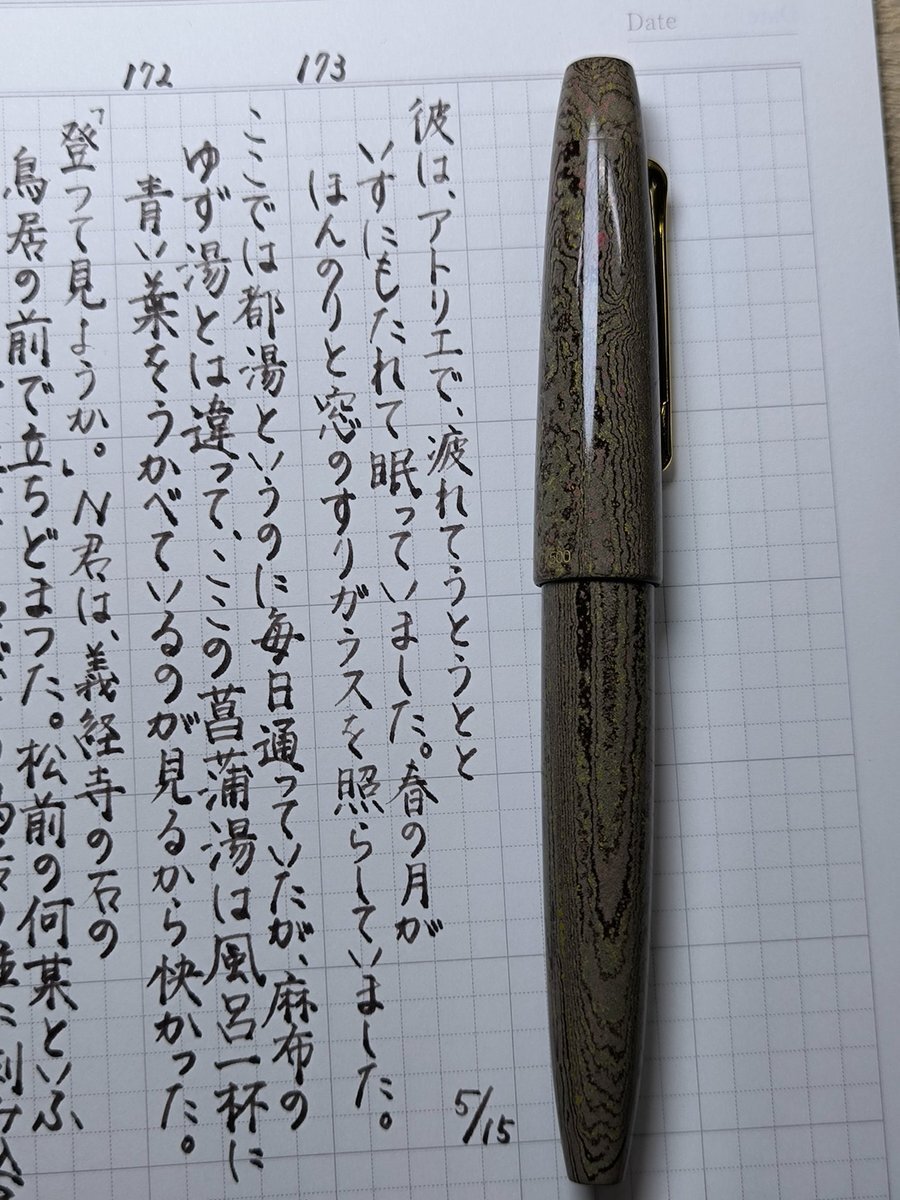 Date
彼は、アトリエで、疲れてうとうとと
いすにもたれて眠っていました。春の月が
ほんのりと窓のすりガラスを照らしていました。
5/15
173
ここでは都湯というのに毎日通っていたが、麻布の
ゆず湯とは違って、ここの菖蒲湯は風呂一杯に
青い葉をうかべているのが見るから快かった。
172
「登つて見ようか。」N君は、義経寺の石の
鳥居の前で立ちどまつた。松前の何某といふ